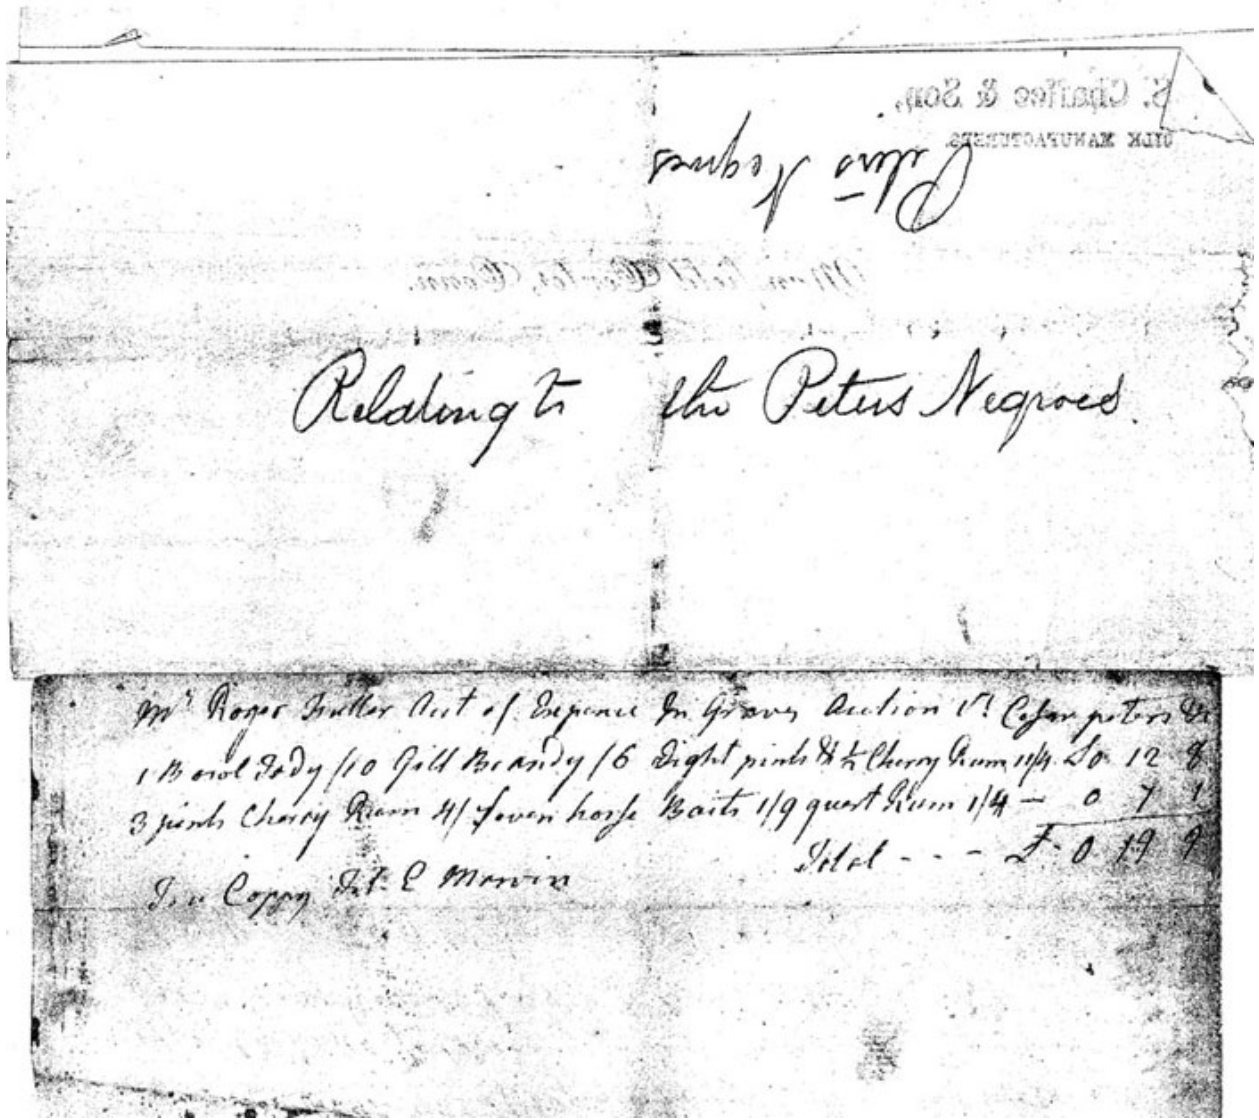 S. Chaffee & Son,
SILK MANUFACTURERS.
Peters Negroes
Mansfield Center, Conn.
Relating to the Peters Negroes.
Mr Roger Fuller Acct of Expence In Graves Action Vs Cesar peters &c
1 Bowl Tody /10 Gill Brandy /6 Eight pints & ½ Cherry Rum 11/4 £0 12 8
3 pints Cherry Rum 4/ Seven horse Baits 1/9 quart Rum 1/4 — 0 7 1
Total - - - £ 0 19 9
Tru Coppy Test E Marvin